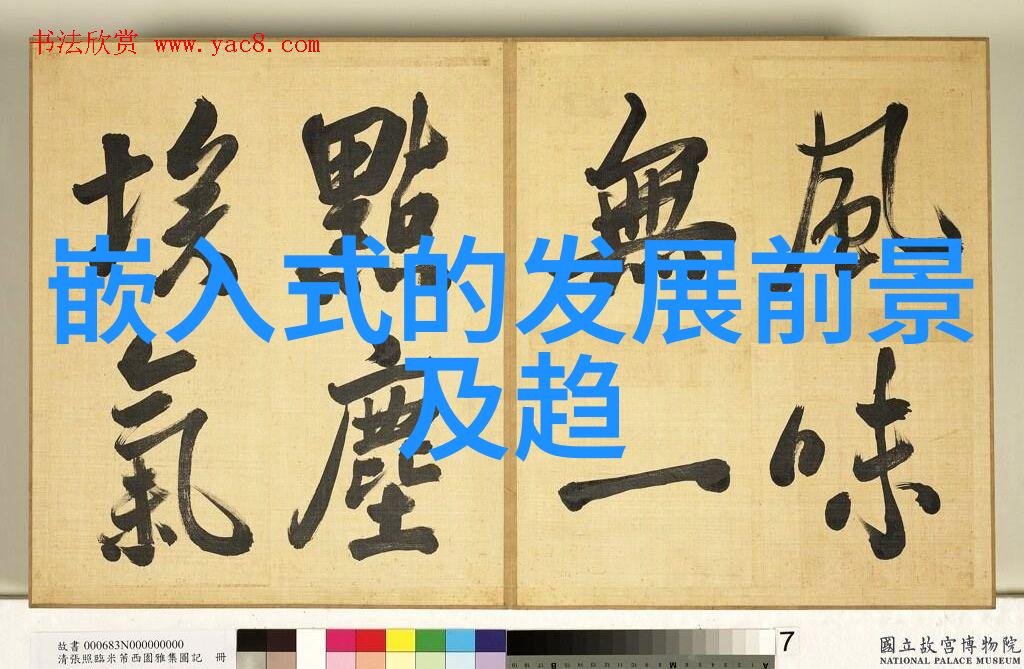 书法欣赏 www.yac8.com
風味
無一
點塵
埃氣
嵌入式的发展前景
及趋
故書 000683N000000000
清張照臨米芾西園雅集圖記 冊
7
國立故宮博物院
NATIONAL PALACE MUSEUM